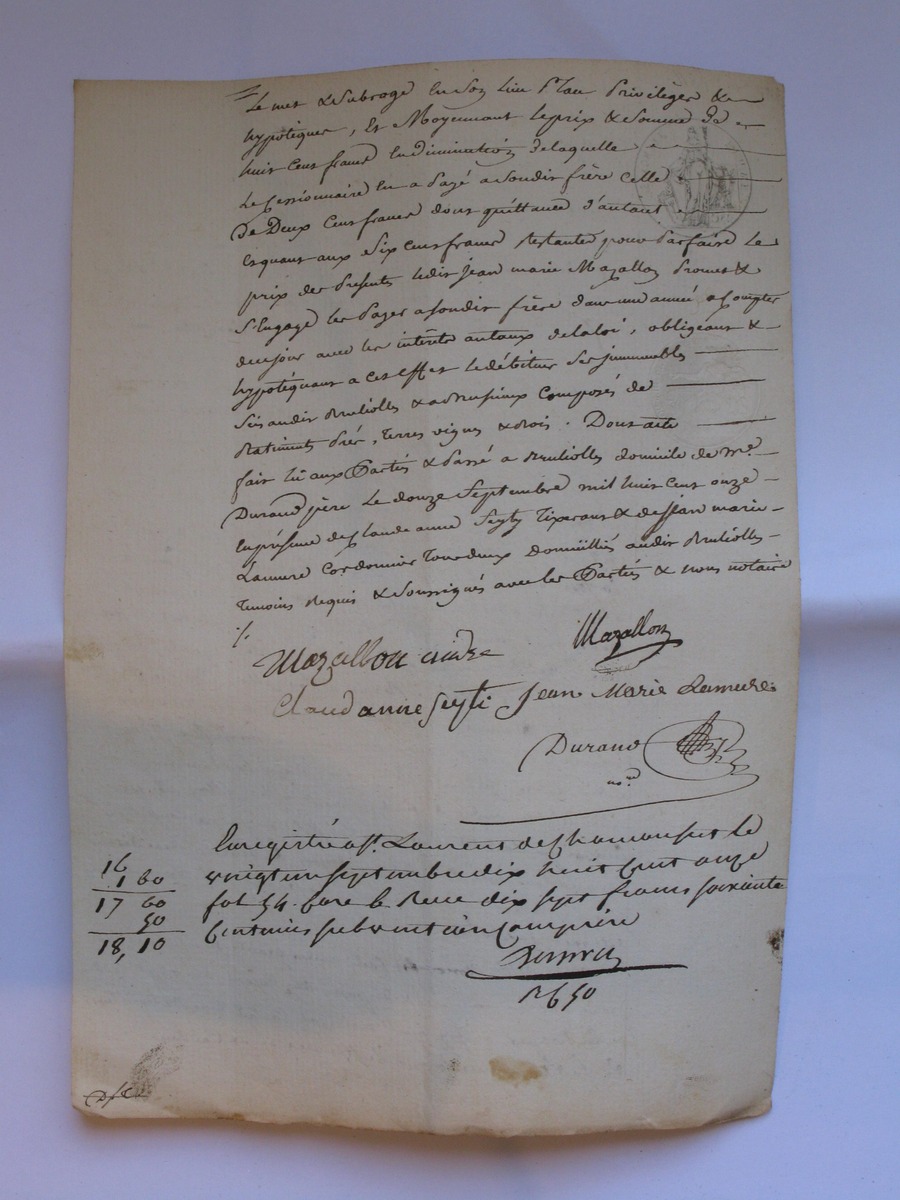 Le met & subroge en son lieu Place Privilèges &
hypotèques, Et Moyennant le prix & Somme de
huit Cens francs En diminution de laquelle
Le Cessionnaire En a Payé a Sondit frère Celle
De Deux Cens francs dont quittance d'autant
Et quant aux Six Cens francs Restants pour Parfaire Le
prix des Présents ledit Jean marie Mazallon Promet &
S'Engage les Payer a Sondit frère dans une année a Compter
de ce jour avec les intérêts au taux de la loi, obligeant &
hypotéquant a cet Effet le débiteur Ses immeubles
Sis audit Brullolles & Composés de
Batiments Prés, Terres vignes & bois. Dont acte
fait lû aux Parties & Passé a Brullolles domicile de Me
Durand père Le douze Septembre mil huit Cent onze
En présence de Claude anne Seyty Tixerant & de Jean marie
Lamure Cordonnier Tous deux Domiciliés audit Brullolles
Temoins Requis & Soussignés avec les Parties & nous notaire
./.
Mazallon Mazallon
Claud anne Seyti Jean Marie Lamure
Durand
nore
Enregistré a St. Laurent de Chamousset le
vingt un septembre dix huit cent onze
fol 54. Case 6. Reçu dix sept francs soixante
Centimes subvention Comprise
16
1 60
17 60
50
18,10